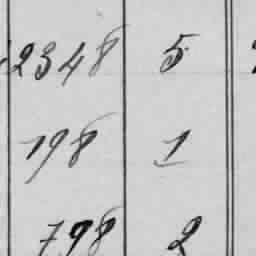 2348 5
198 1
798 2